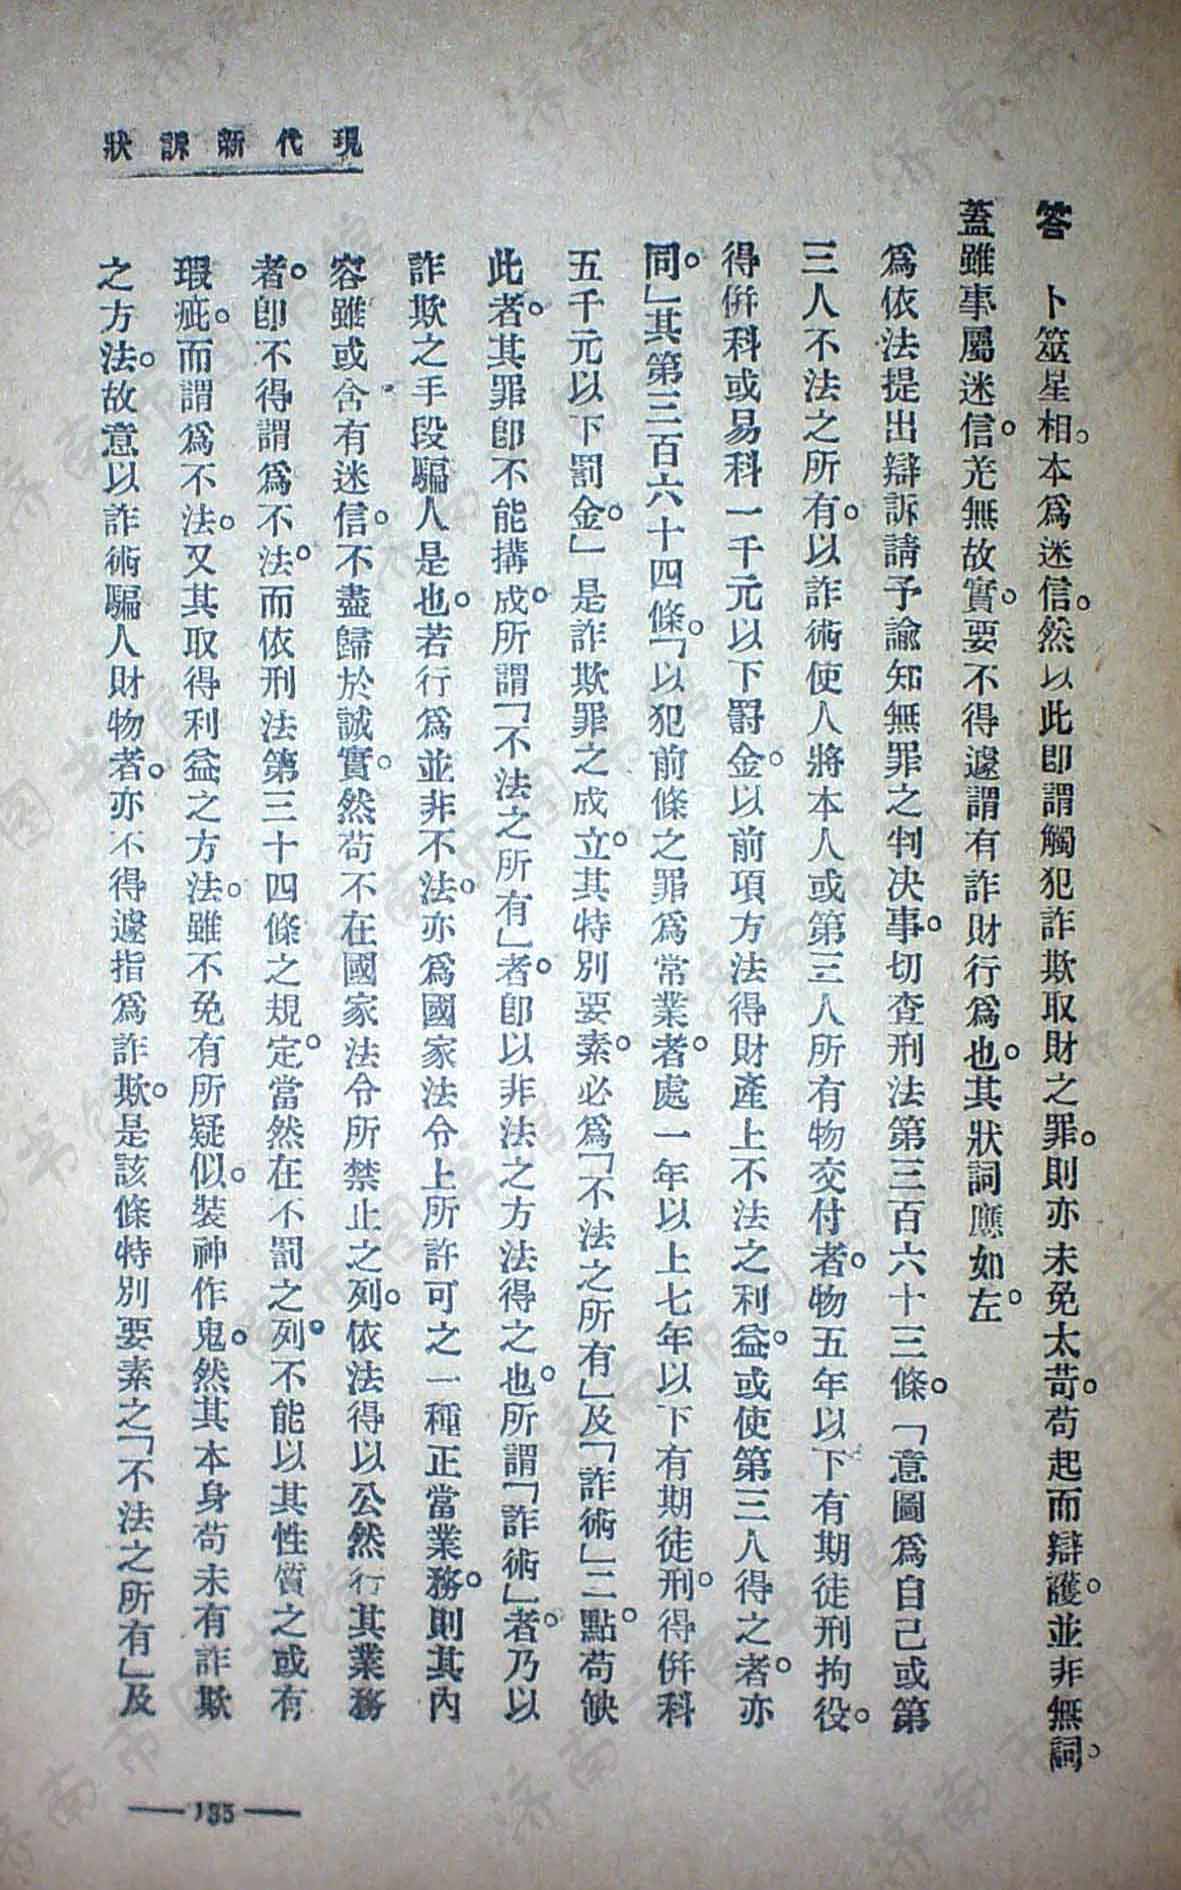 現代新訴狀
答　卜筮星相。本爲迷信。然以此即謂觸犯詐欺取財之罪。則亦未免太苛。苟起而辯護。並非無詞。
蓋雖事屬迷信。羌無故實。要不得遽謂有詐財行爲也。其狀詞應如左。
爲依法提出辯訴請予諭知無罪之判決事。切查刑法第三百六十三條。「意圖爲自己或第
三人不法之所有。以詐術使人將本人或第三人所有物交付者。物五年以下有期徒刑拘役。
得併科或易科一千元以下罰金。以前項方法得財產上不法之利益。或使第三人得之者。亦
同。」其第三百六十四條。「以犯前條之罪爲常業者。處一年以上七年以下有期徒刑。得併科
五千元以下罰金。」是詐欺罪之成立。其特別要素。必爲「不法之所有」及「詐術」二點。苟缺
此者。其罪卽不能搆成。所謂「不法之所有」者。卽以非法之方法得之也。所謂「詐術」者。乃以
詐欺之手段騙人是也。若行爲並非不法。亦爲國家法令上所許可之一種正當業務。則其內
容雖或含有迷信。不盡歸於誠實。然苟不在國家法令所禁止之列。依法得以公然行其業務
者。卽不得謂爲不法。而依刑法第三十四條之規定。當然在不罰之列。不能以其性質之或有
瑕疵。而謂爲不法。又其取得利益之方法。雖不免有所疑似。裝神作鬼。然其本身苟未有詐欺
之方法。故意以詐術騙人財物者。亦不得遽指爲詐欺。是該條特別要素之「不法之所有」及
—135—